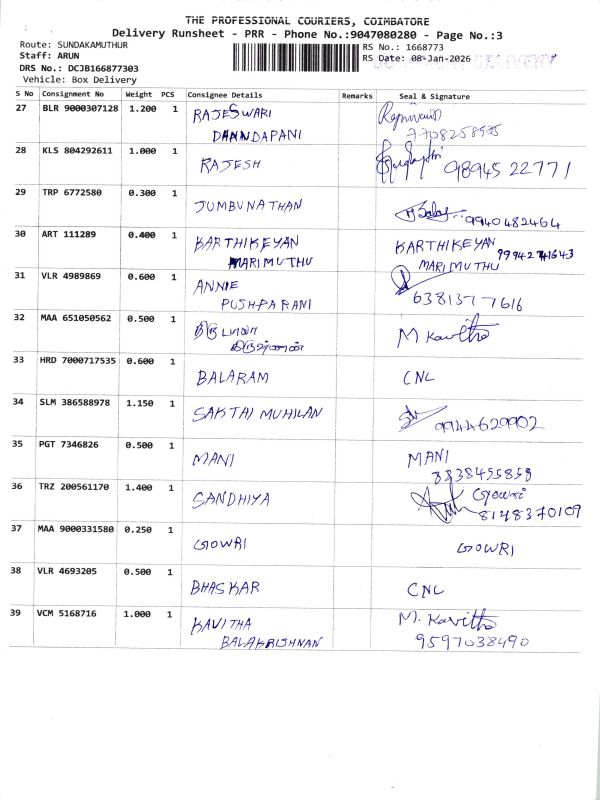 THE PROFESSIONAL COURIERS, COIMBATORE
Delivery Runsheet - PRR - Phone No.:9047080280 - Page No.:3
Route: SUNDAKAMUTHUR
RS No.: 1668773
Staff: ARUN
RS Date: 08-Jan-2026
DELIVERY
DRS No.: DCJB166877303
Vehicle: Box Delivery
S No Consignment No Weight PCS Consignee Details Remarks Seal & Signature
27 BLR 9000307128 1.200 1 RAJESWARI
DHANDAPANI 7708258975
28 KLS 804292611 1.000 1 RAJESH 98945 22771
29 TRP 6772580 0.300 1 JUMBUNATHAN 9940482464
30 ART 111289 0.400 1 KARTHIKEYAN KARTHIKEYAN 99942741643
MARIMUTHU MARIMUTHU
31 VLR 4989869 0.600 1 ANNIE
PUSHPARANI 6381377616
32 MAA 651050562 0.500 1 M Kavitha
33 HRD 7000717535 0.600 1 BALARAM CNL
34 SLM 386588978 1.150 1 SAKTAI MUHILAN 9944629902
35 PGT 7346826 0.500 1 MANI MANI
8838455858
36 TRZ 200561170 1.400 1 SANDHIYA Gowri
8148370109
37 MAA 9000331580 0.250 1 GOWRI GOWRI
38 VLR 4693205 0.500 1 BHASKAR CNL
39 VCM 5168716 1.000 1 KAVITHA M. Kavitha
BALAKRISHNAN 9597038490